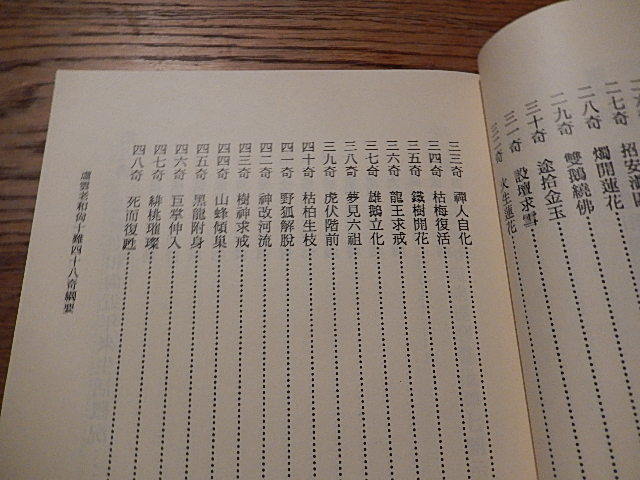 二七奇 招安
二八奇 燭開蓮花
二九奇 雙鵝繞佛
三十奇 途拾金玉
三一奇 設壇求雪
三二奇 火生蓮花
三三奇 禪人自化
三四奇 枯梅復活
三五奇 鐵樹開花
三六奇 龍王求戒
三七奇 雄鵝立化
三八奇 夢見六祖
三九奇 虎伏階前
四十奇 枯柏生枝
四一奇 野狐解脫
四二奇 神改河流
四三奇 樹神求戒
四四奇 山蜂傾巢
四五奇 黑龍附身
四六奇 巨掌伸入
四七奇 緋桃璀璨
四八奇 死而復甦
虛雲老和尚十難四十八奇綱要